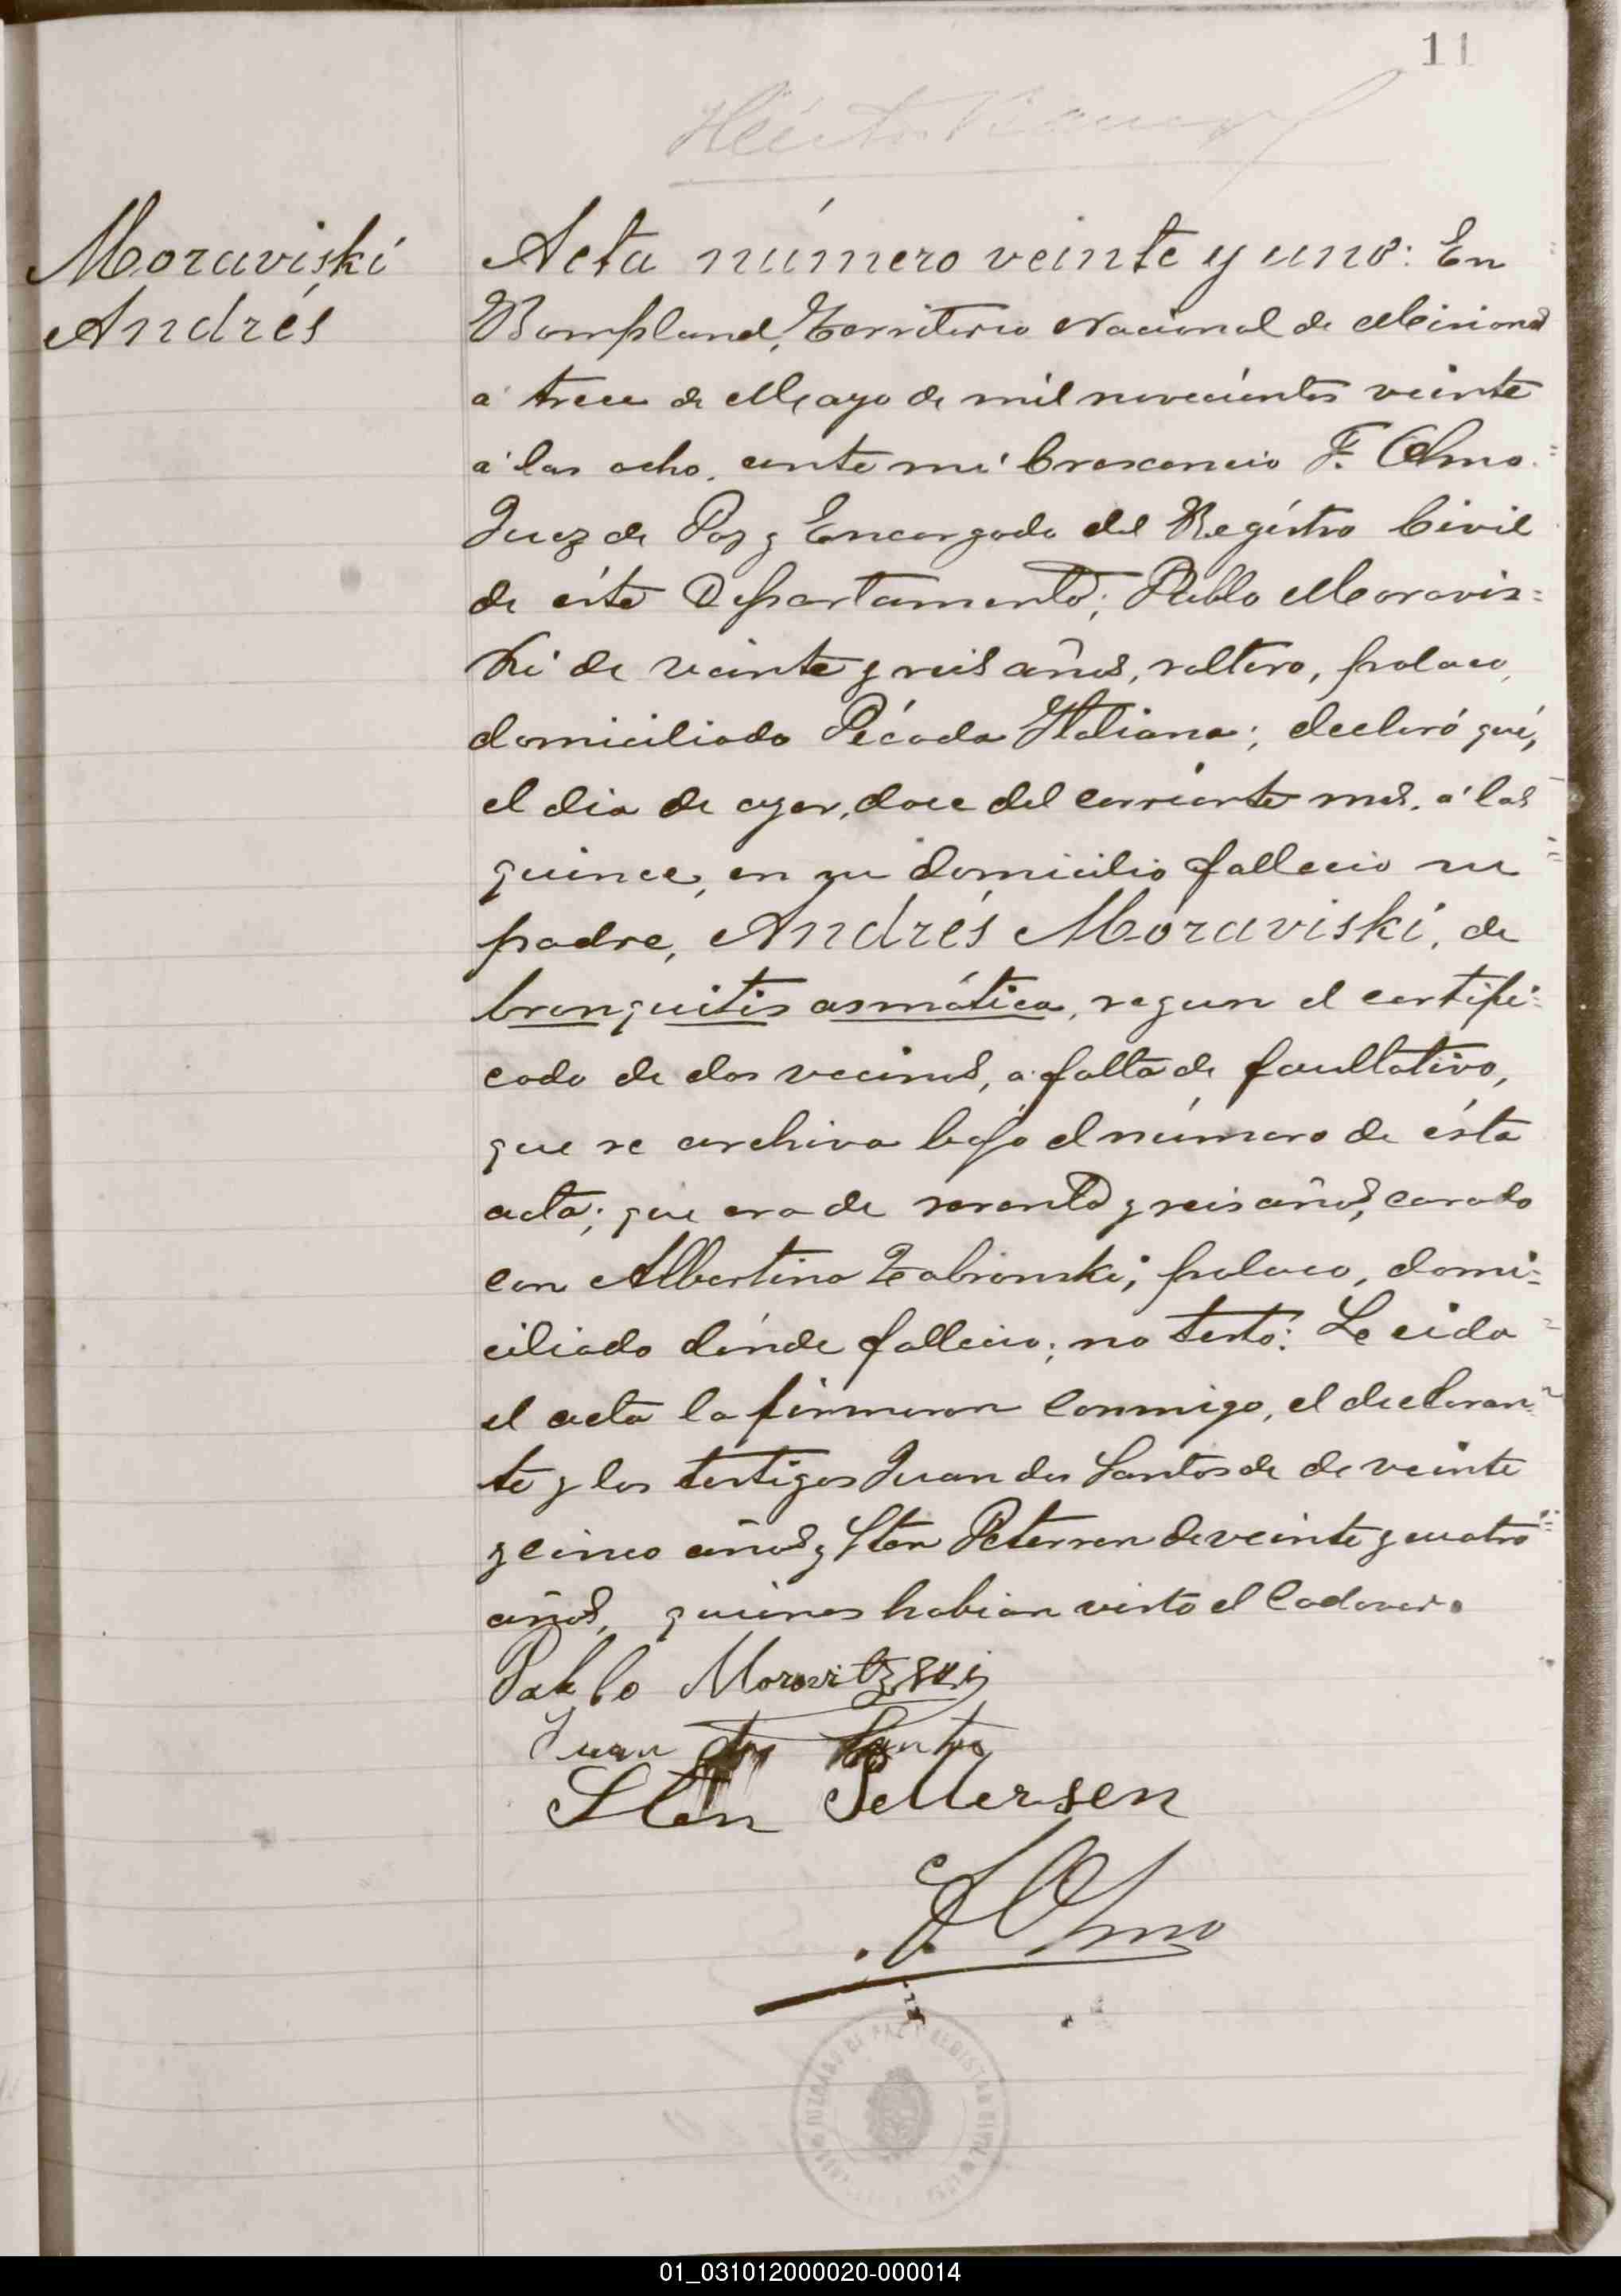 11
Moraviski
Andrés
Acta número veinte y uno: En
Bompland, Territorio Nacional de Misiones
a trece de Mayo de mil novecientos veinte
á las ocho, ante mí Crescencio F. Olmo
Juez de Paz y Encargado del Registro Civil
de éste Departamento; Pablo Moravis=
ki de veinte y seis años, soltero, polaco,
domiciliado Picada Italiana; declaró qué,
el dia de ayer, doce del corriente mes, á las
quince, en su domicilio fallecio su
padre, Andrés Moraviski, de
bronquitis asmática, segun el certifi=
cado de dos vecinos, a falta de facultativo,
que se archiva bajo el número de ésta
acta; que era de sesenta y seis años, casado
con Albertina Zabronski; polaco, domi=
ciliado dónde fallecio; no testó: Leida
el acta la firmaron conmigo, el declaran=
te y los testigos Juan dos Santos de de veinte
y cinco años y Sten Petersen de veinte y cuatro
años, quienes habian visto el cadaver.
Pablo Moravitzski
Juan dos Santos
Sten Pettersen
F. Olmo
JUZGADO DE PAZ Y REGISTRO CIVIL
01_031012000020-000014